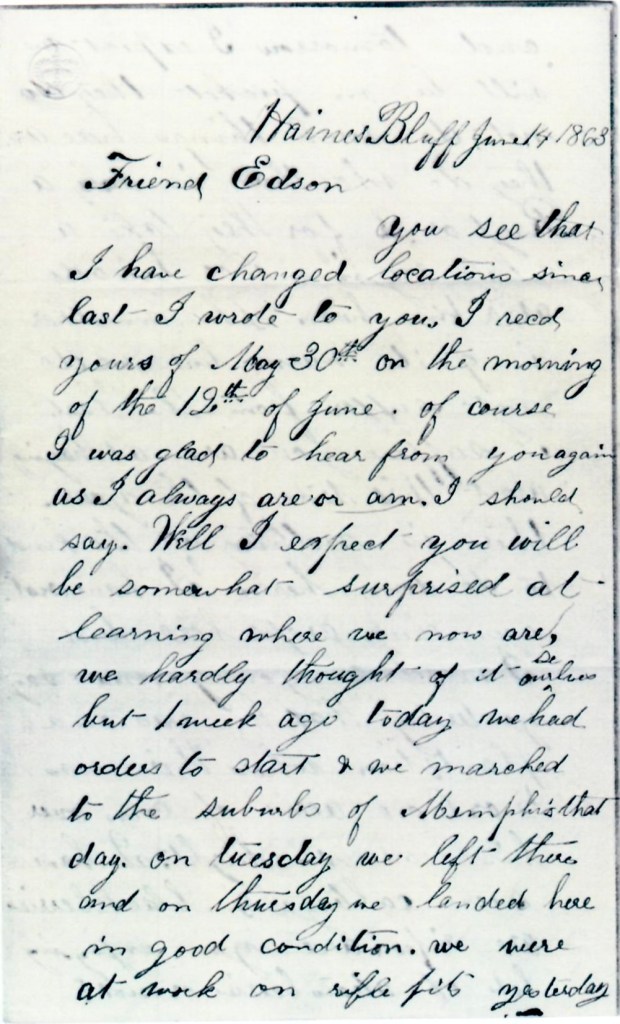 Haines Bluff June 14 1863
Friend Edson
You see that
I have changed locations since
last I wrote to you. I recd
yours of May 30th on the morning
of the 12th of June. of course
I was glad to hear from you again
as I always are or am. I should
say. Well I expect you will
be somewhat surprised at
learning where we now are,
we hardly thought of it ourselves
but 1 week ago today we had
orders to start & we marched
to the suburbs of Memphis that
day. on tuesday we left there
and on thursday we landed here
in good condition. we were
at work on rifle pits yesterday